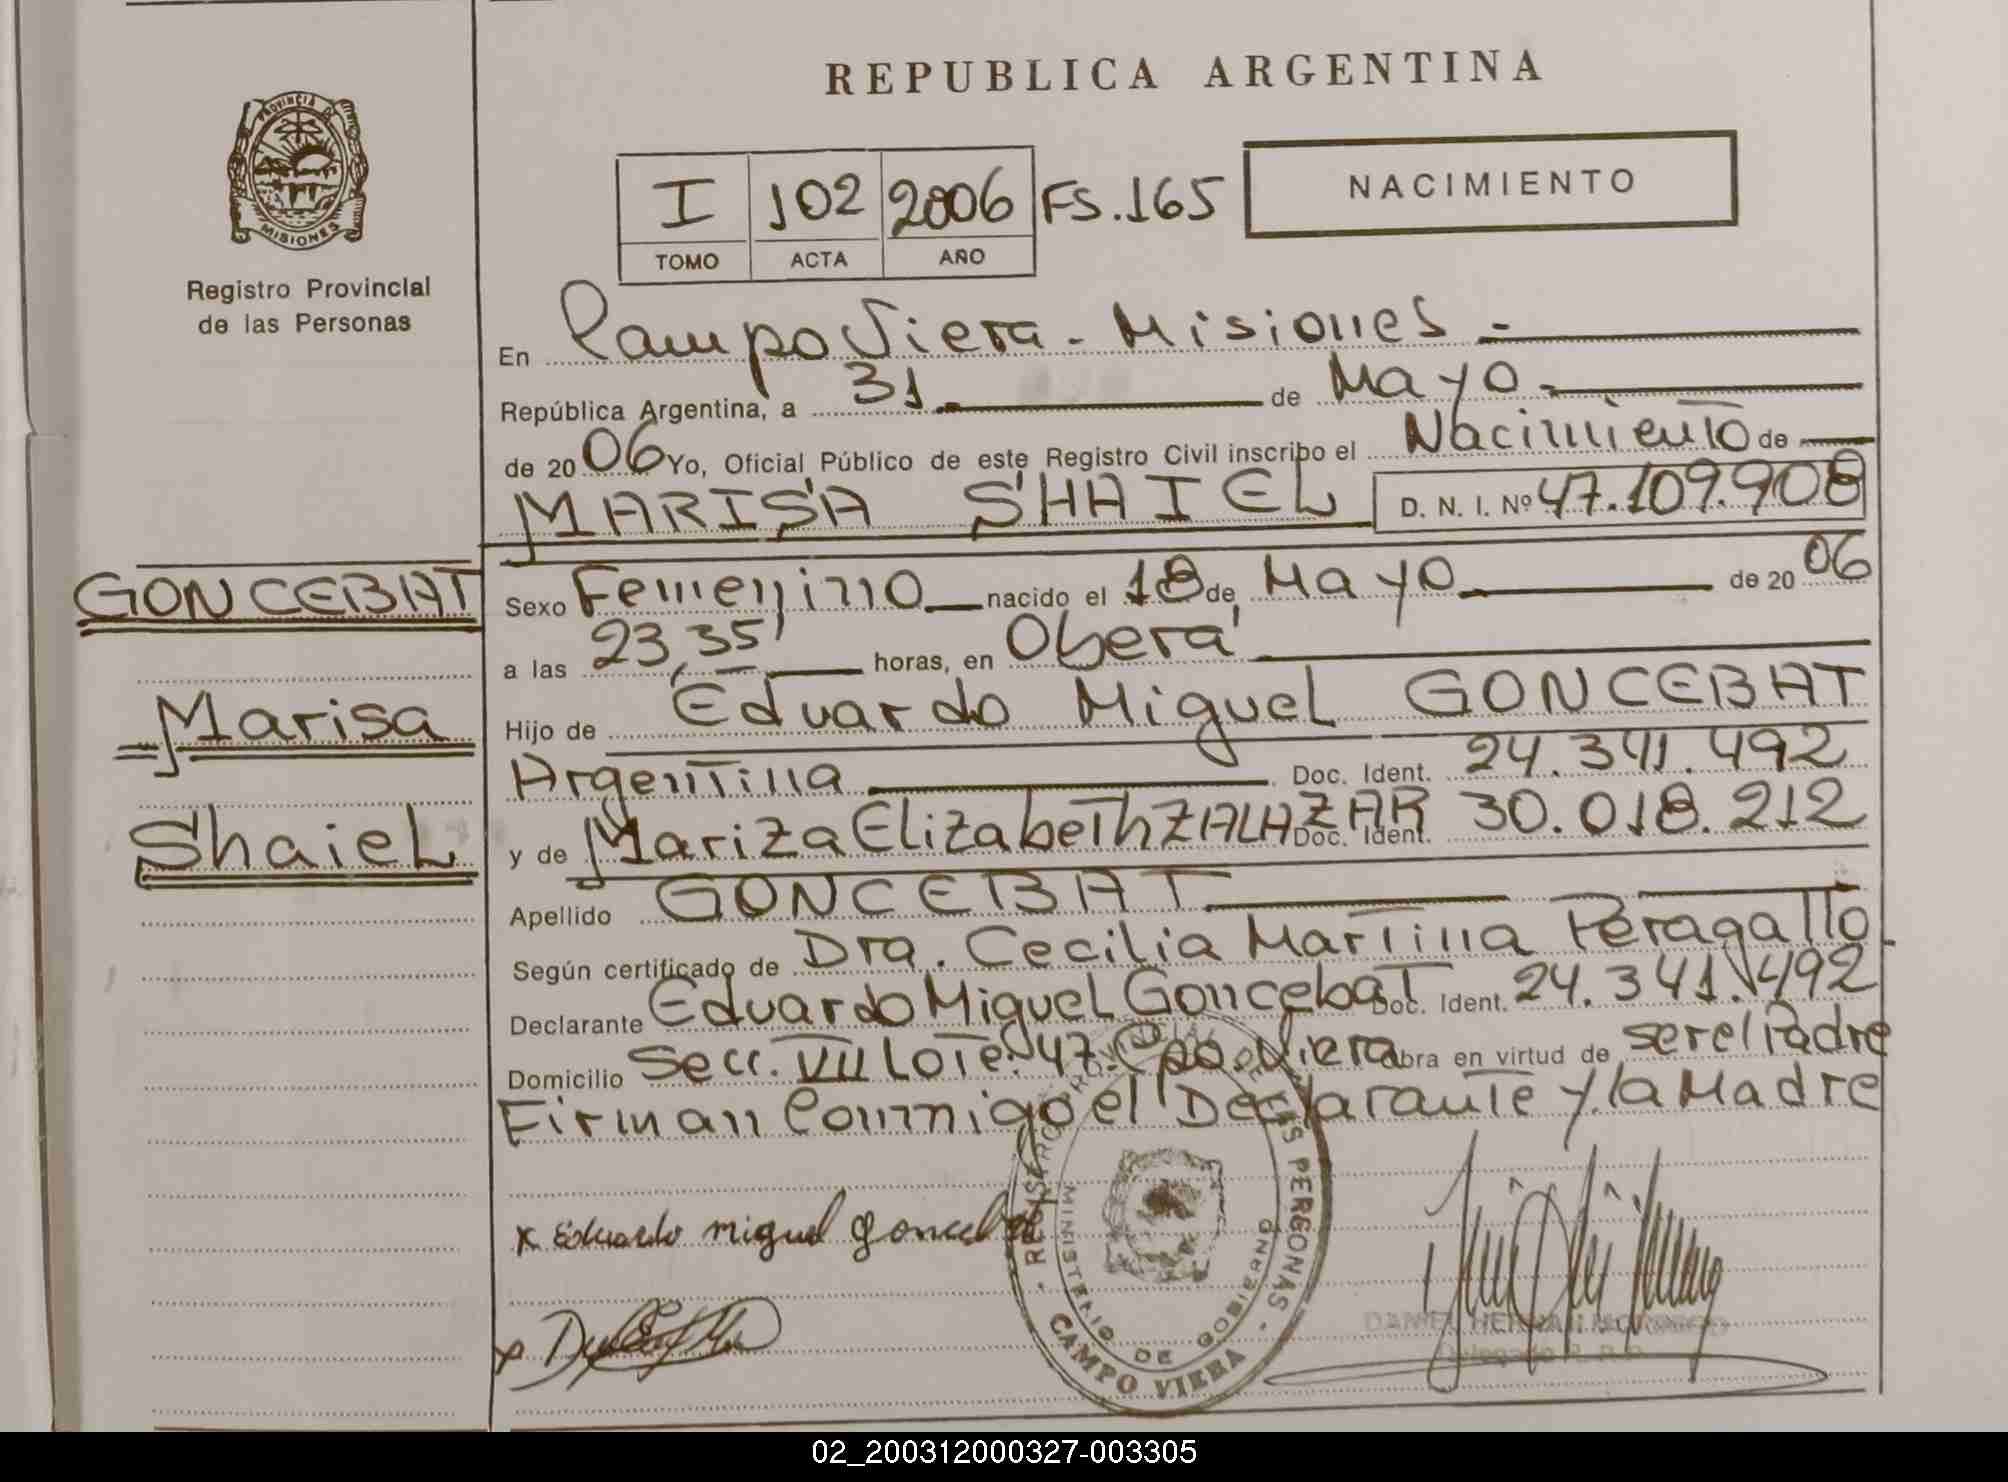 REPUBLICA ARGENTINA
PROVINCIA DE
MISIONES
Registro Provincial
de las Personas
I 102 2006 FS.165
TOMO ACTA AÑO
NACIMIENTO
En Campo Viera - Misiones -
República Argentina, a 31 de Mayo -
de 2006 Yo, Oficial Público de este Registro Civil inscribo el Nacimiento de
MARISA SHAIEL D. N. I. Nº 47.109.908
GONCEBAT
Marisa
Shaiel
Sexo Femenino nacido el 18 de Mayo de 2006
a las 23,35' horas, en Oberá
Hijo de Eduardo Miguel GONCEBAT
Argentina Doc. Ident. 24.341.492
y de Mariza Elizabeth ZALAZAR Doc. Ident. 30.018.212
Apellido GONCEBAT
Según certificado de Dra. Cecilia Martina Peragallo
Declarante Eduardo Miguel Goncebat Doc. Ident. 24.341.492
Domicilio Secc. VII Lote: 47. Cpo. Viera obra en virtud de ser el Padre
Firman Conmigo el Declarante y la Madre
x Eduardo miguel goncebat
REGISTRO PROVINCIAL DE LAS PERSONAS
MINISTERIO DE GOBIERNO
CAMPO VIERA
DANIEL HERNAN
Delegado R.P.P.
02_200312000327-003305